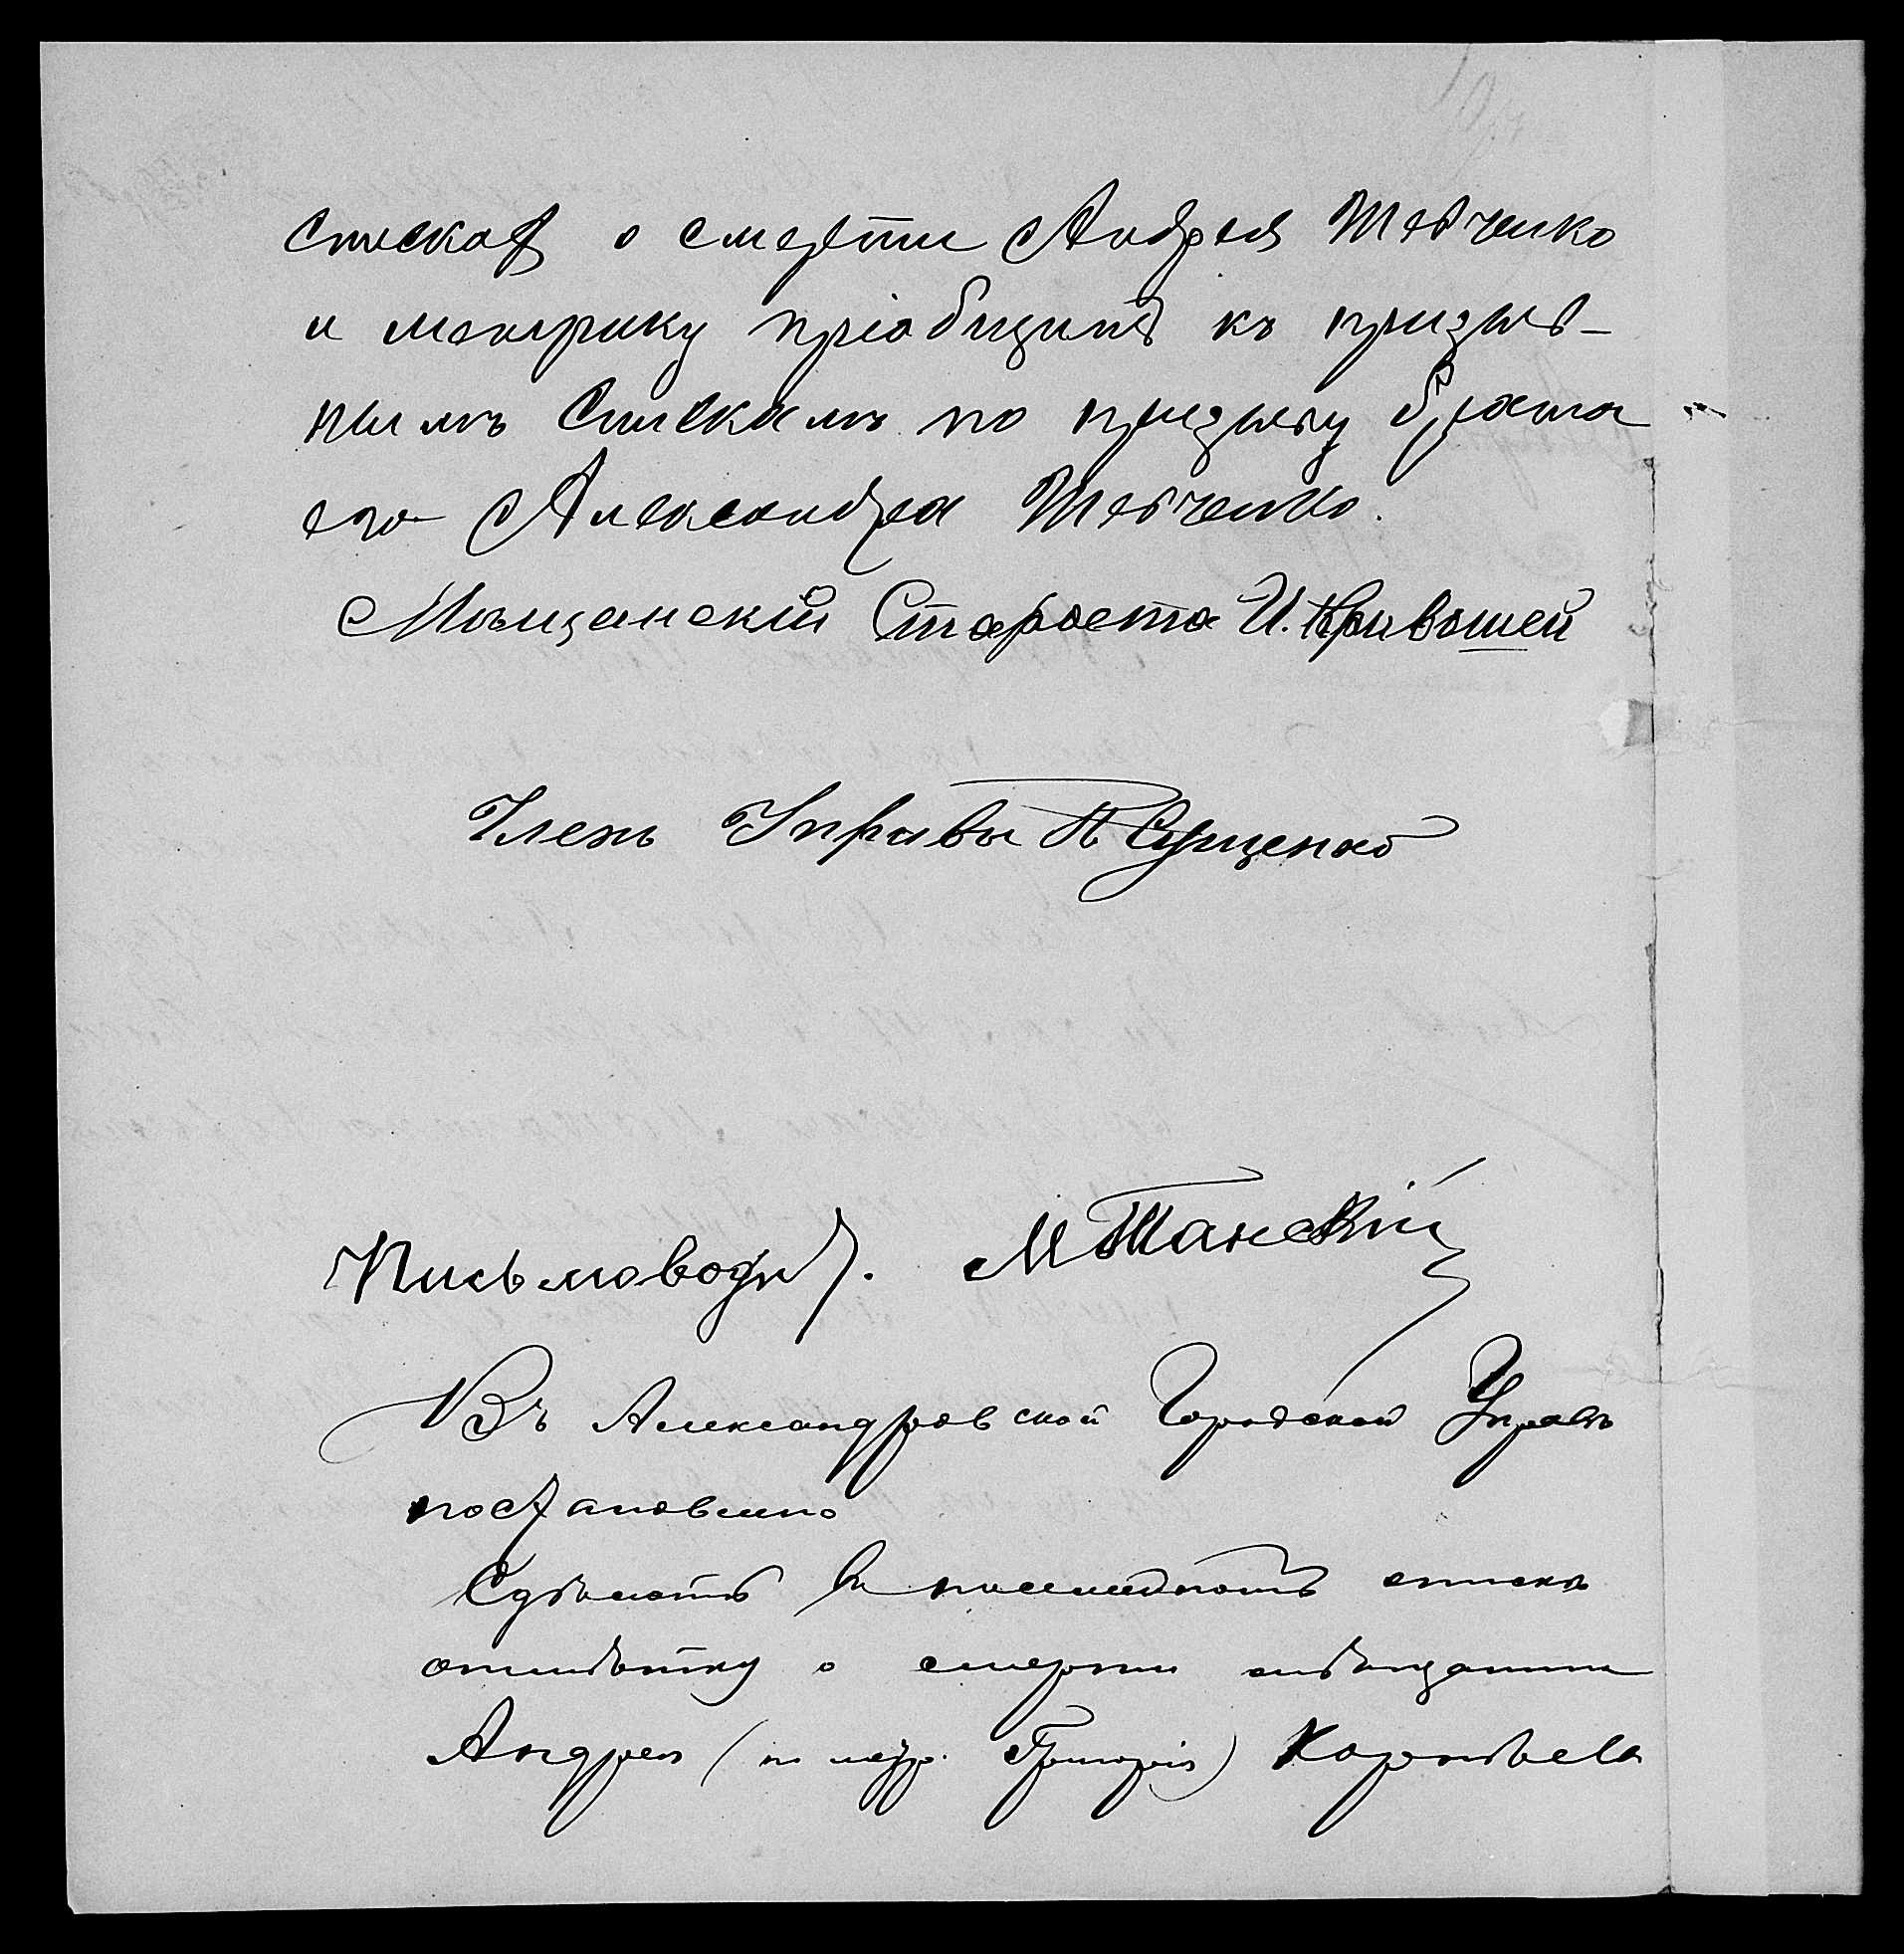 спискахъ о смерти Андрея Шевченко
и метрику пріобщить къ призыв-
нымъ спискамъ по призыву брата
его Александра Шевченко.
Мѣщанскій Староста И. Кривошей
Членъ Управы П Сущенко
Письмоводит. М Танскій
Въ Александровской Городской Управѣ
постановлено
Сдѣлать въ посемейномъ списке
отмѣтку о смерти мѣщанина
Андрея (по метр. Григорія) Корнѣева